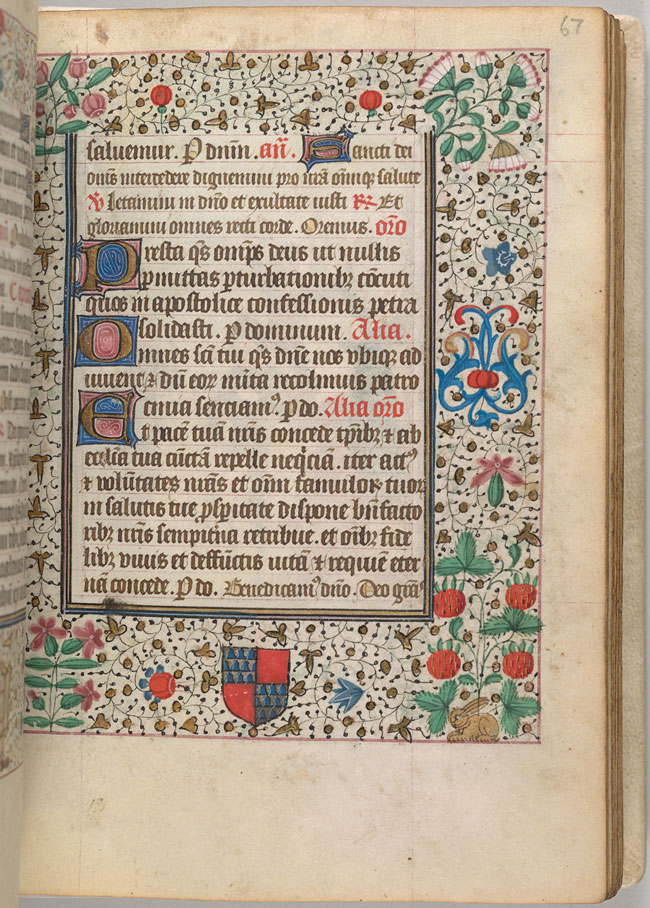 67
saluemur. P dnm. añ. Sancti dei
om̄s intercedere dignemini pro nr̄a om̄iq; salute
V̶ Letamini in dño et exultate iusti R̶ Et
gloriamini omnes recti corde. Oremus. or̄o
Presta q̄s omp̄s deus ut nullis
p̱mittas p̱turbationibꝫ cōcuti
quos in apostolice confessionis petra
solidasti. P dominum. Alia.
Omnes sc̄i tui q̄s dn̄e nos vbiqꝫ ad
iuuent ⁊ dū eoꝝ mīta recolimus patro
cinia senciamꝰ. P do. Alia or̄o
Et pacē tuā nr̄is concede tp̄ribꝫ ⁊ ab
ecc̄lia tua cūctā repelle neq̄ciā. iter actꝰ
⁊ volūtates nr̄as et om̄ī famuloꝝ tuoꝝ
in salutis tue ꝓsp̱itate dispone bn̄facto
ribꝫ nr̄is sempit̄na retribue. et om̄ibꝫ fide
libꝫ viuis et deffūctis vitā ⁊ requiē eter
nā concede. P do. Benedicamꝰ dño. Deo gr̄aˢ